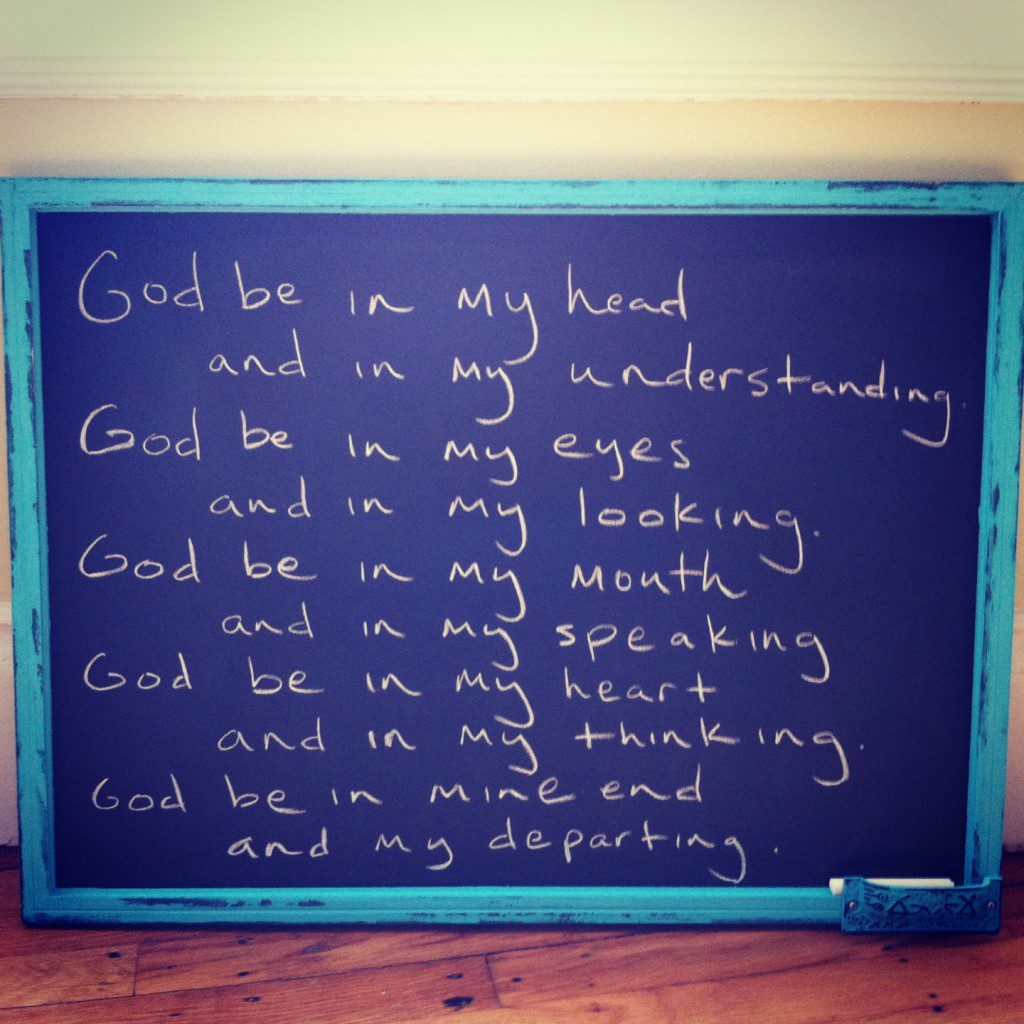 God be in my head
and in my understanding.
God be in my eyes
and in my looking.
God be in my mouth
and in my speaking
God be in my heart
and in my thinking.
God be in mine end
and my departing.